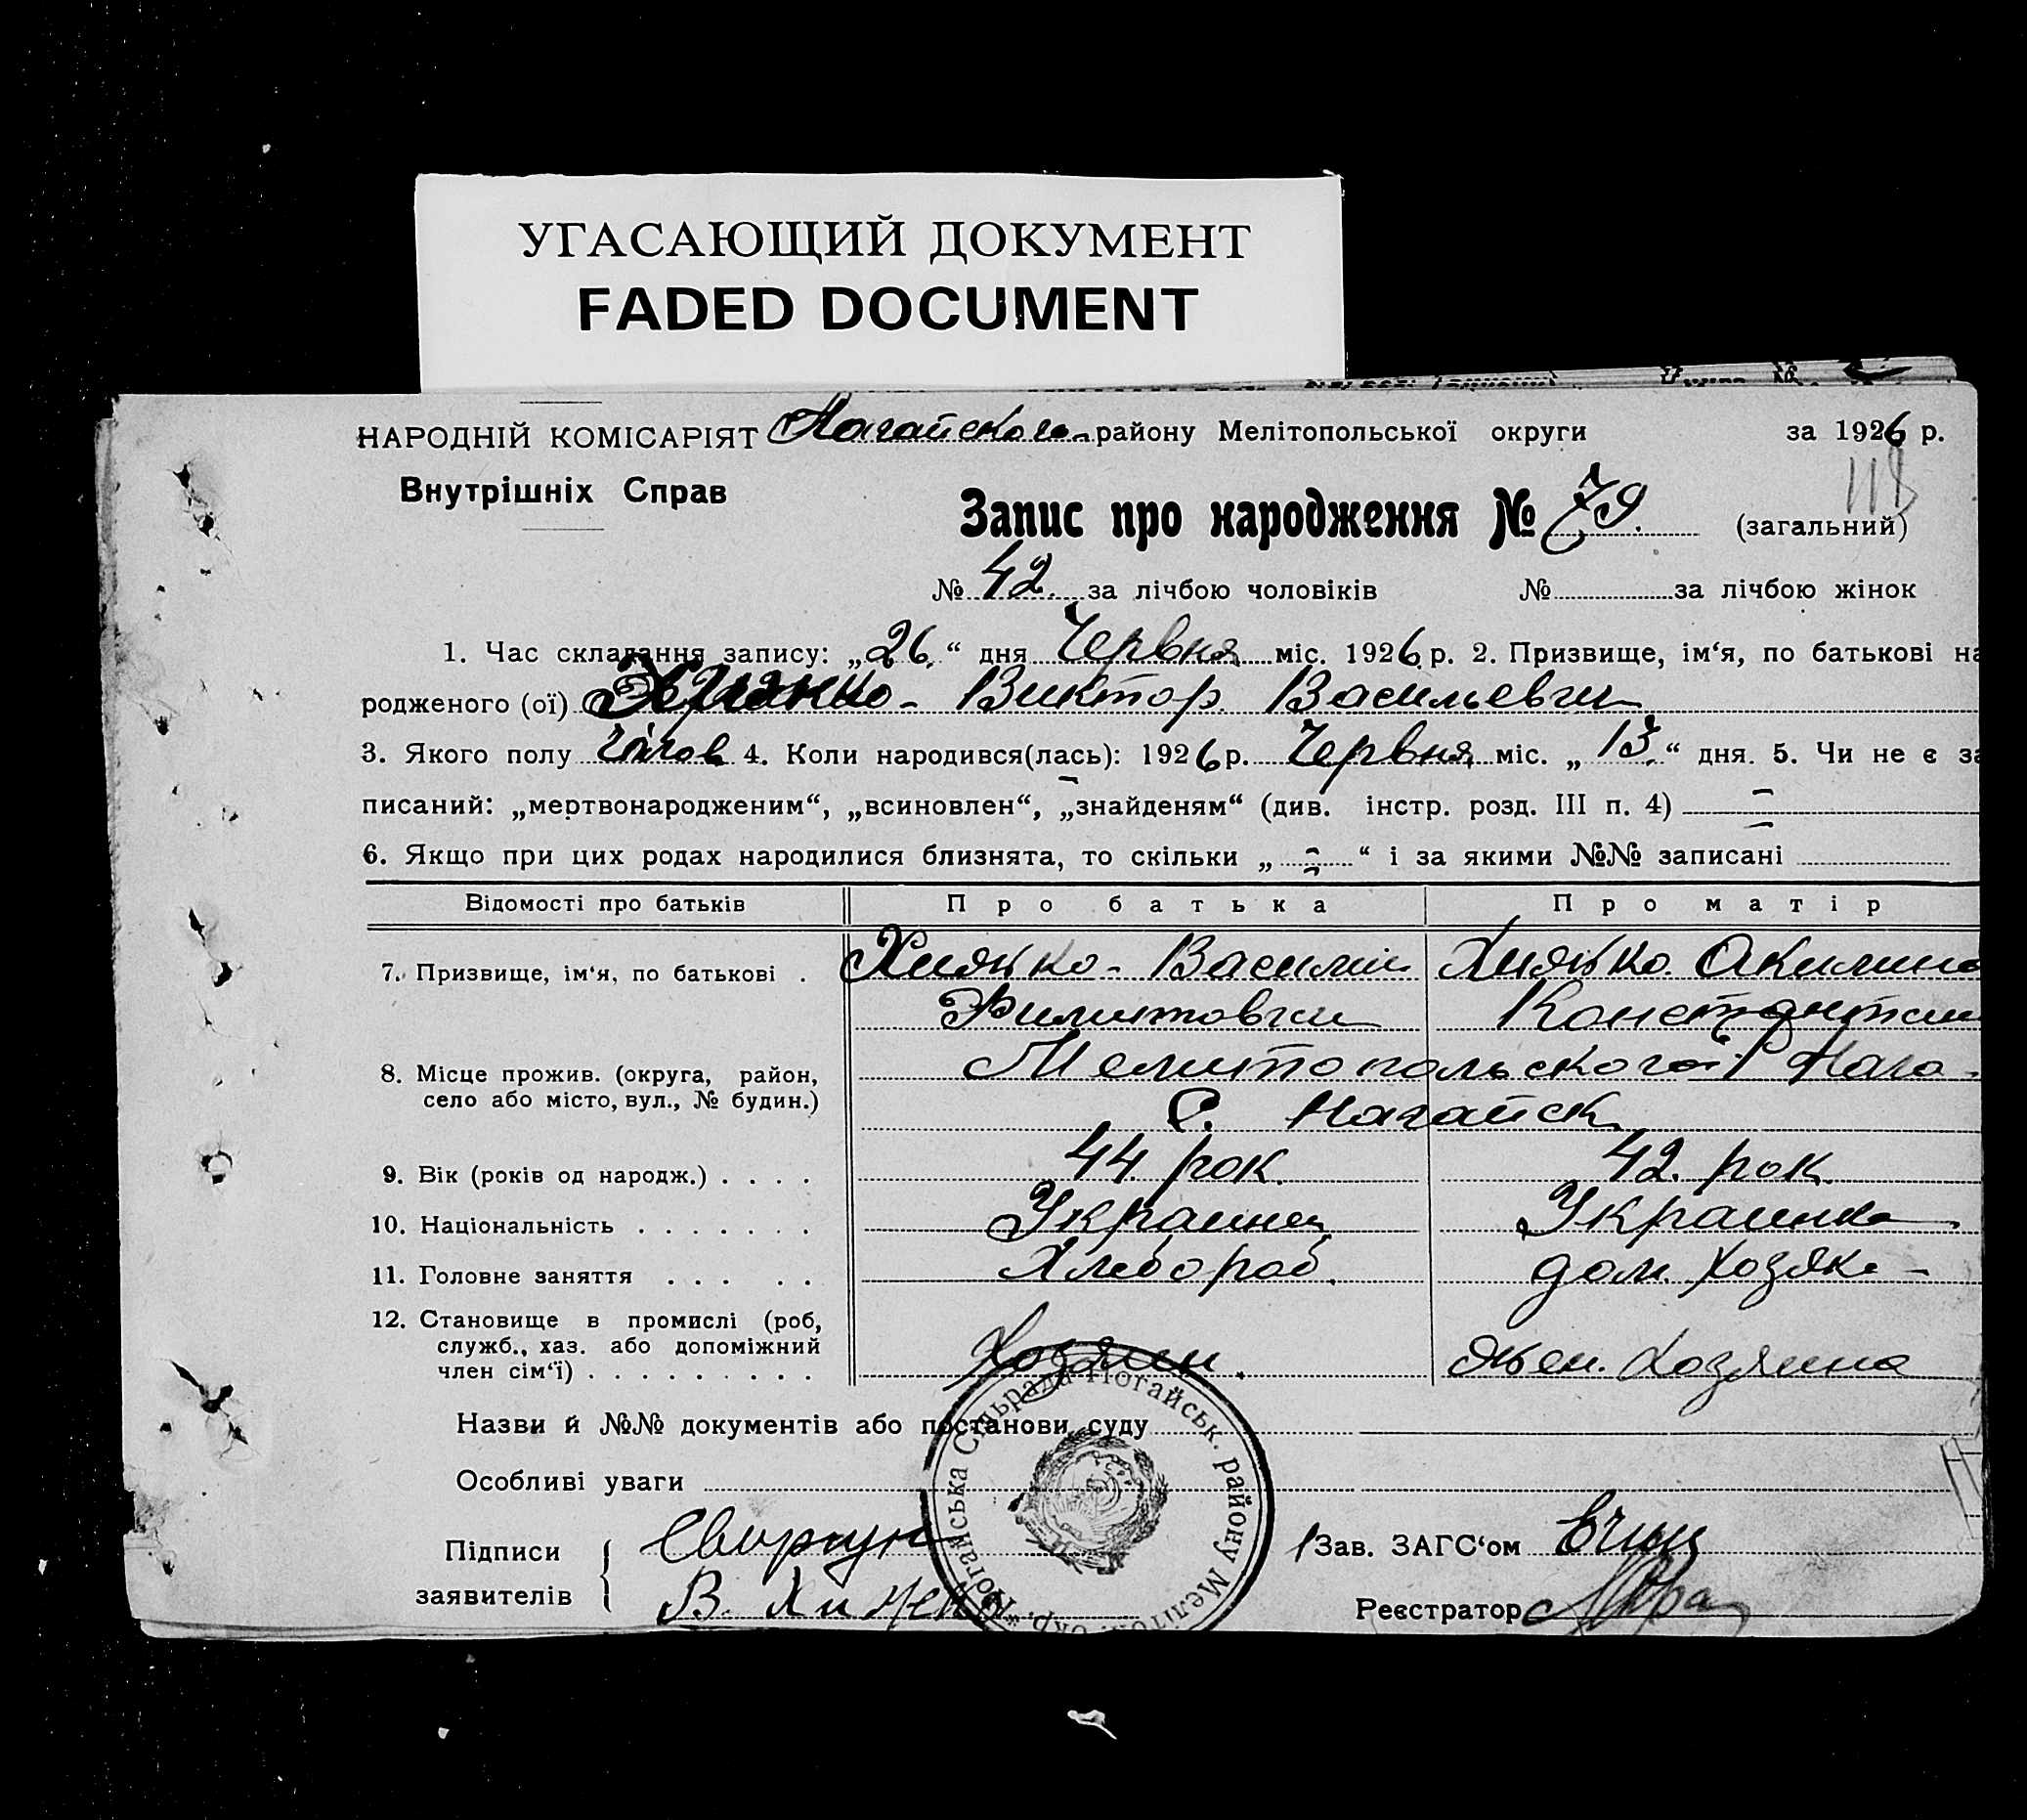 УГАСАЮЩИЙ ДОКУМЕНТ
FADED DOCUMENT
НАРОДНІЙ КОМІСАРІЯТ Нагайского району Мелітопольської округи за 1926 р.
118
Внутрішніх Справ
Запис про народження № 79. (загальний)
№ 42. за лічбою чоловіків № за лічбою жінок
1. Час складання запису: „26.“ дня Червня міс. 1926 р. 2. Призвище, ім‘я, по батькові на
родженого (ої) Виктор Васильевич
3. Якого полу 4. Коли народився(лась): 1926 р. Червня міс. „13.“ дня. 5. Чи не є за
писаний: „мертвонародженим“, „всиновлен“, „знайденям“ (див. інстр. розд. III п. 4) –
6. Якщо при цих родах народилися близнята, то скільки „ - “ і за якими №№ записані
Відомості про батьків Про батька Про матір
7. Призвище, ім‘я, по батькові . Хижко - Василий Хижко Акилина
Филипович Константин
8. Місце прожив. (округа, район, село або місто, вул., № будин.) Мелитопольского Нага-
С. Нагайск
9. Вік (років од народж.) . . . . 44. рок. 42. рок.
10. Національність . . . . . . . Украинец Украинка
11. Головне заняття . . . . . Хлебороб. дом. хозяйка -
12. Становище в промислі (роб, служб., хаз. або допоміжний член сім‘ї) . . . . . . . . . Хозяин. жен. Хозяина
Назви й №№ документів або постанови суду
Особливі уваги
Ногайська Сільрада Ногайськ. району Меліто. окр.
Підписи заявителів
В. Хижко
Зав. ЗАГС‘ом
Реєстратор